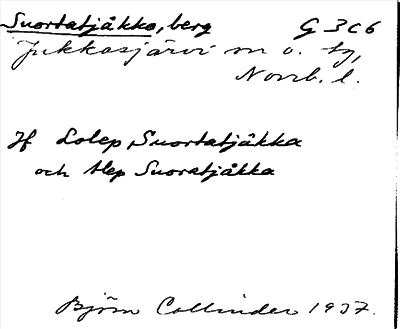 Suortatjåkko, berg G 3 c 6
Jukkasjärvi sn o. tg,
Norrb. l.
Jf Lolep Suortatjåkka
och Alep Suoratjåkka
Björn Collinder 1937.